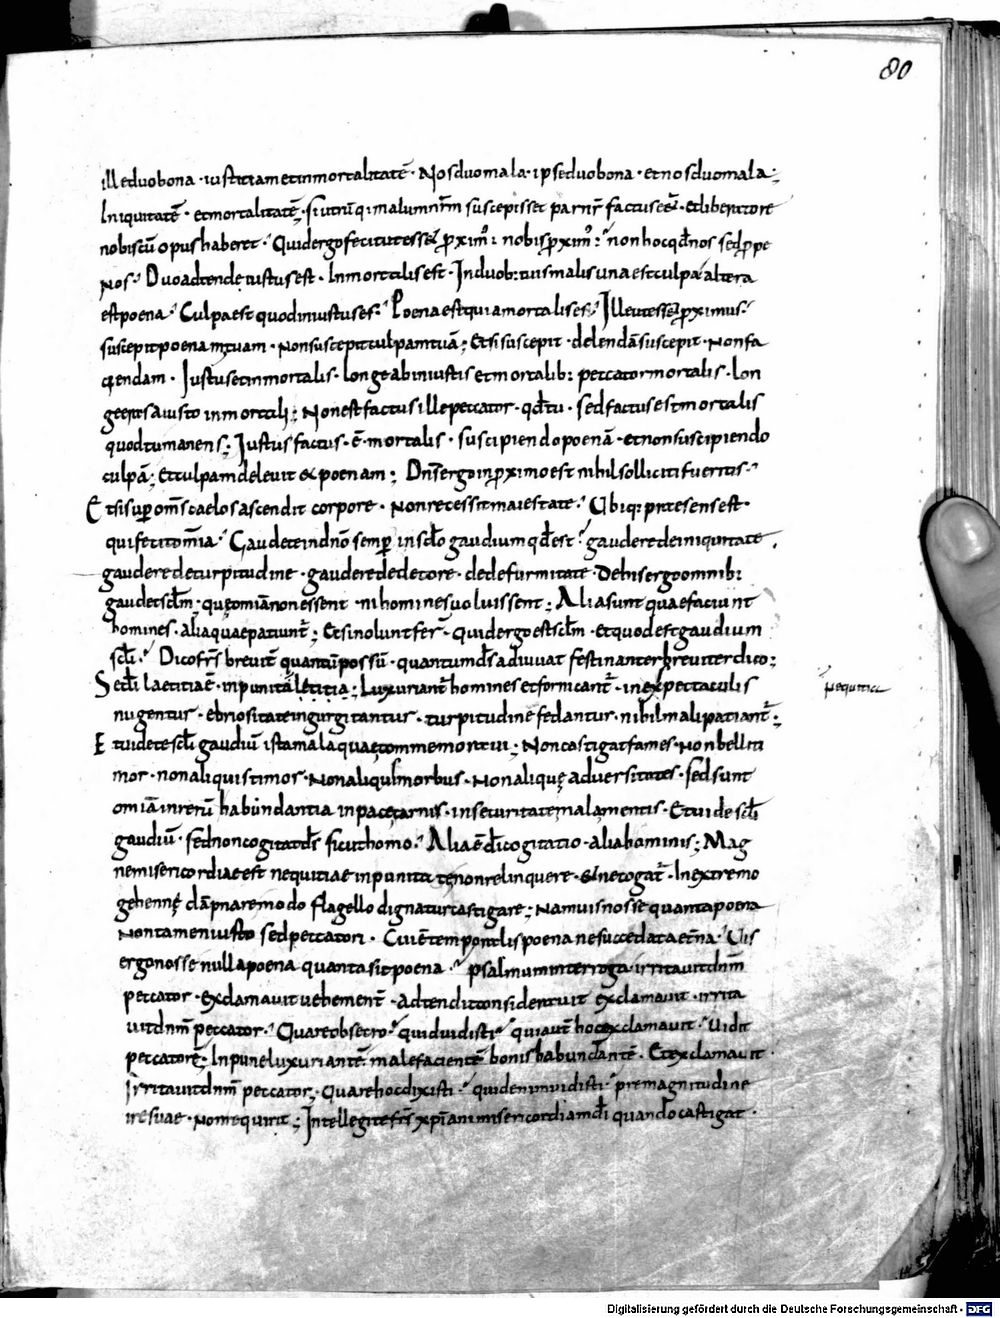 80
ille duo bona · iustitiam et inmortalitatē · Nos duo mala · ipse duo bona · et nos duo mala ·;
Iniquitatē · et mortalitatē; si utrūq; malum nr̄m suscepisset par nr̄ factus eēt · et liberatore
nobiscū opus haberet · Quid ergo fecit ut esset proxim⁹ nobis proxim⁹ non hoc qd̄ nos sed prope
Nos Duo adtendę iustus est · Inmortalis est · In duob: tuis malis una est culpa altera
est poena Culpa est quod iniustus es Poena est quia mortalis es Ille ut esset proximus
suscepit poenam tuam · Non suscepit culpam tuā; Et si suscepit · delendā suscepit · Non fa
ciendam · Iustus et inmortalis · longe ab iniustis et mortalib: peccator mortalis · lon
ge eras a iusto inmortali; Non est factus ille peccator · qd̄ tu · sed factus est mortalis
quod tu manens; Iustus factus · ē · mortalis · suscipiendo poenā · et non suscipiendo
culpā; Et culpam delevit et poenam; Dn̄s ergo in proximo est nihil solliciti fueritis
Et si super om̄s caelos ascendit corpore · Non recessit maiestate Ubiq: praesens est
qui fecit om̄ia Gaudete in dn̄o semper in scl̄o gaudium qd̄ est gaudere de iniquitate
gaudere de turpitudine · gaudere de decore · de deformitate · De his ergo omnib:
gaudet scl̄m; quę om̄ia non essent · ni homines voluissent; Alia sunt quae faciunt
homines · alia quae patiunt̄; Et si nolunt fer̄ · Quid ergo est scl̄m · et quod est gaudium
scl̄i Dico fr̄s breuit̄ quantū possū · quantum dr̄s adiuuat festinanter breuiter dico;
Scl̄i laetitia ē · inpunita lętitia; Luxuriant homines et fornicant̄ · in expectaculis
nugentur · ebriositate ingurgitantur · turpitudine fedantur · nihil mali patiant̄;
nequitia
Et uidete scl̄i gaudiū ista mala quae commemoraui; Non castigat fames · Non belli ti
mor · non aliquis timor · Non aliquis morbus · Non alique adversitates · sed sunt
om̄ia in rerū habundantia in pace carnis · in securitate malae mentis · Et uide scl̄i
gaudiū · sed non cogitat dr̄s sicut homo · Alia ē d̄i cogitatio · alia hominis; Mag
ne misericordiae est nequitiae inpunitatē non relinquere · et ne cogat̄ · In extremo
gehennę dāpnare modo flagello dignatur castigare; Nam vis nosse quanta poena
Non tamen iusto sed peccatori · Cui ē temporalis poena ne succedat aet̄na · Vis
ergo nosse nulla poena quanta sit poena · psalmum interroga irritauit dn̄m
peccator · exclamauit uehement̄ · adtendit considerauit exclamauit · irrita
uit dn̄m peccator Quare obsecro quid uidisti qui aut̄ hoc exclamauit Uidit
peccatorē; Inpune luxuriantē malefacientē bonis habundantē · Et exclamauit ·
Irritauit dn̄m peccator; Quare hoc dixisti · quid enim uidisti prae magnitudine
ire suae · non requirit; Intellegite fr̄s xp̄iani misericordiam d̄i quando castigat ·
Digitalisierung gefördert durch die Deutsche Forschungsgemeinschaft - DFG